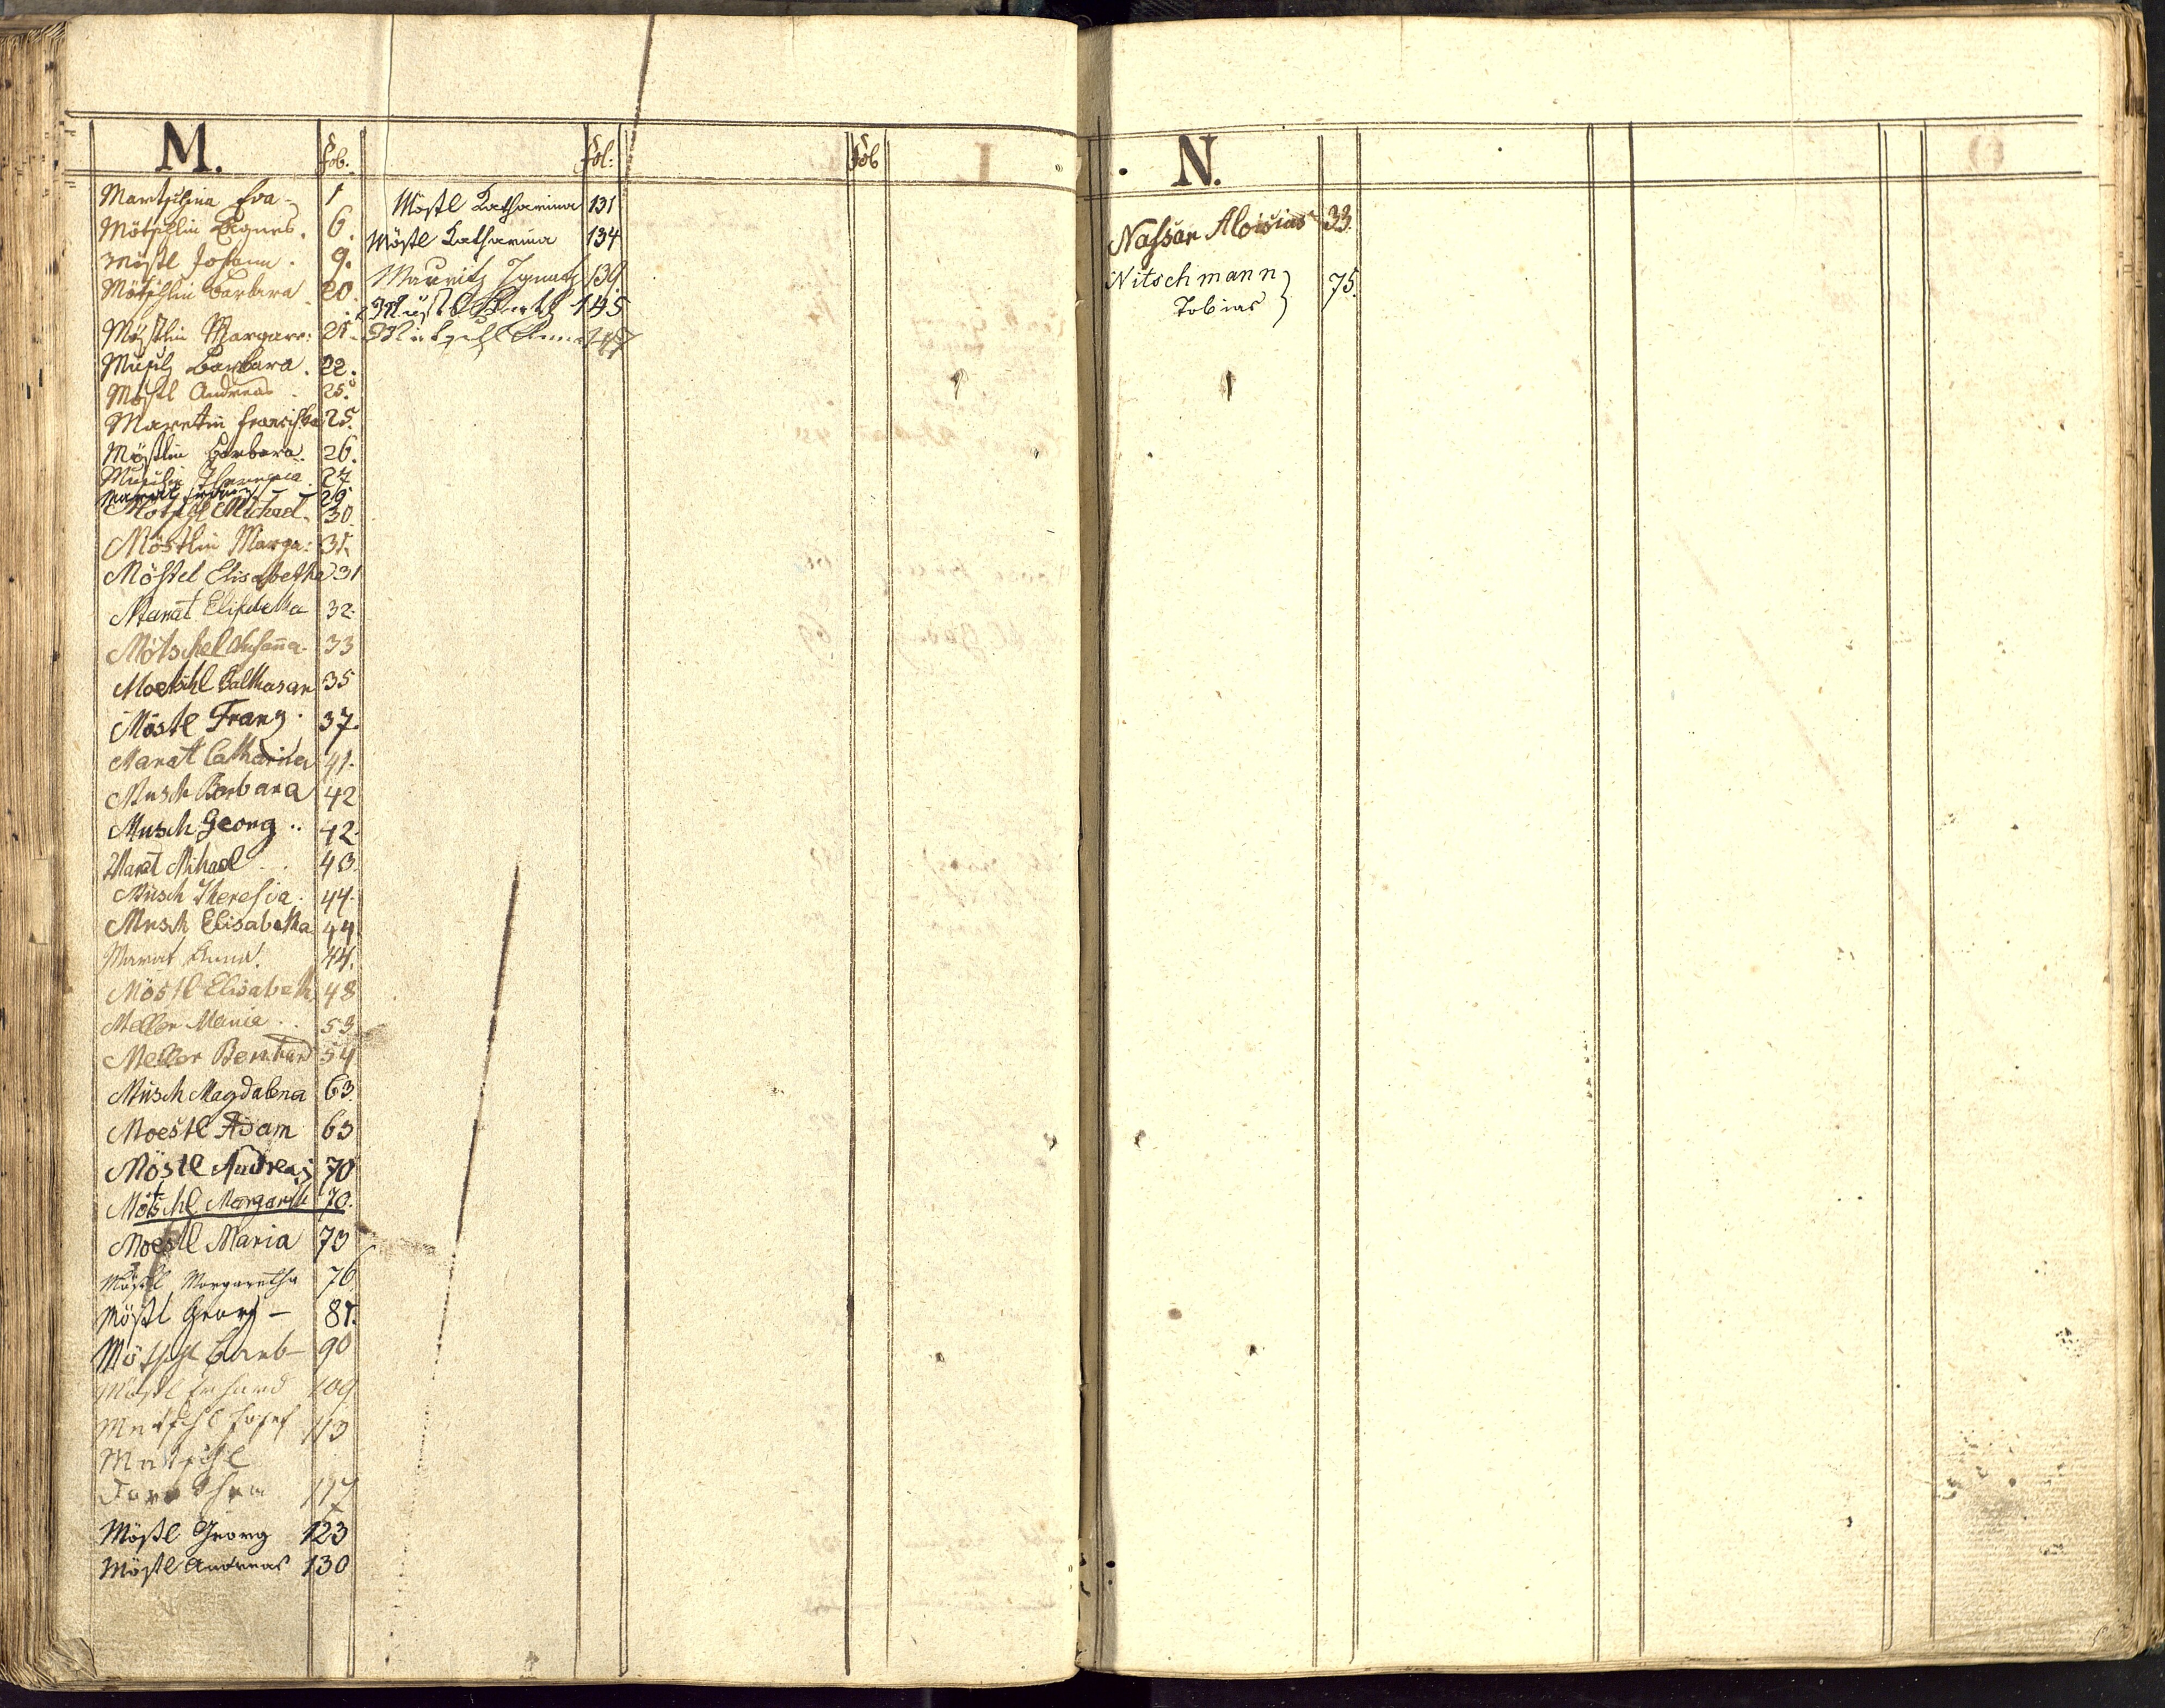 M. Fol.
Martschina Eva 1
Mötschlin Agnes. 6.
Möstl Johann. 9.
Mötschlin Barbara 20.
Möstlin Margare: 21.
Musch Barbara. 22.
Möstl Andreas 25.
Maretin Francisca 25.
Möstlin Barbara. 26.
Theresia. 27
29
Motschl Michael. 30.
Möstlin Marga: 31.
Möstel Elisabetha 31
Marat Elisabetha 32.
Mötschel Susanna 33
Moetschl Balthasar 35
Möstl Franz. 37.
Marat Catharina 41.
Musch Barbara 42
Musch Georg.. 42.
Marat Mihael.. 43.
Musch Theresia. 44.
Musch Elisabetha 44
Marat Anna. 44.
Möstl Elisabeth 48
Meller Maria.. 53.
Meller Bernhard 54
Musch Magdalena 63.
Moestl Adam 63
Möstl Andreas 70
Mötschl Margareth 70.
Moestl Maria 73
Möstl Margaretha 76
Möstl Georg – 81.
Mötschl Barb– 90
Möstl Erhard 109
Metschl Josef 113
Metschl
Dorothea 117
Möstl Georg 123
Möstl Andreas 130
Fol:
Möstl Katharina 131
Möstl Katharina 134
Mauritz Ignatz 139.
145
Anna 147
Fol
N.
Nassar Aloisius 33.
Nitschmann
Tobias } 75.